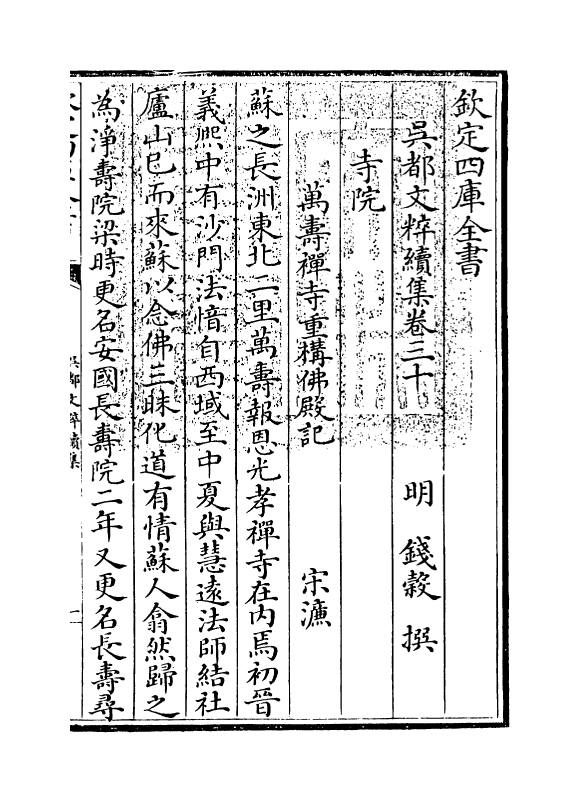 欽定四庫全書
吳都文粹續集卷三十
明 錢榖 撰
寺院
萬壽禪寺重構佛殿記 宋濂
蘇之長洲東北二里萬壽報恩光孝禪寺在内焉初晉
義熙中有沙門法愔自西域至中夏與慧遠法師結社
廬山已而來蘇以念佛三昧化道有情蘇人翕然歸之
為淨壽院梁時更名安國長壽院二年又更名長壽尋
吳都文粹續集